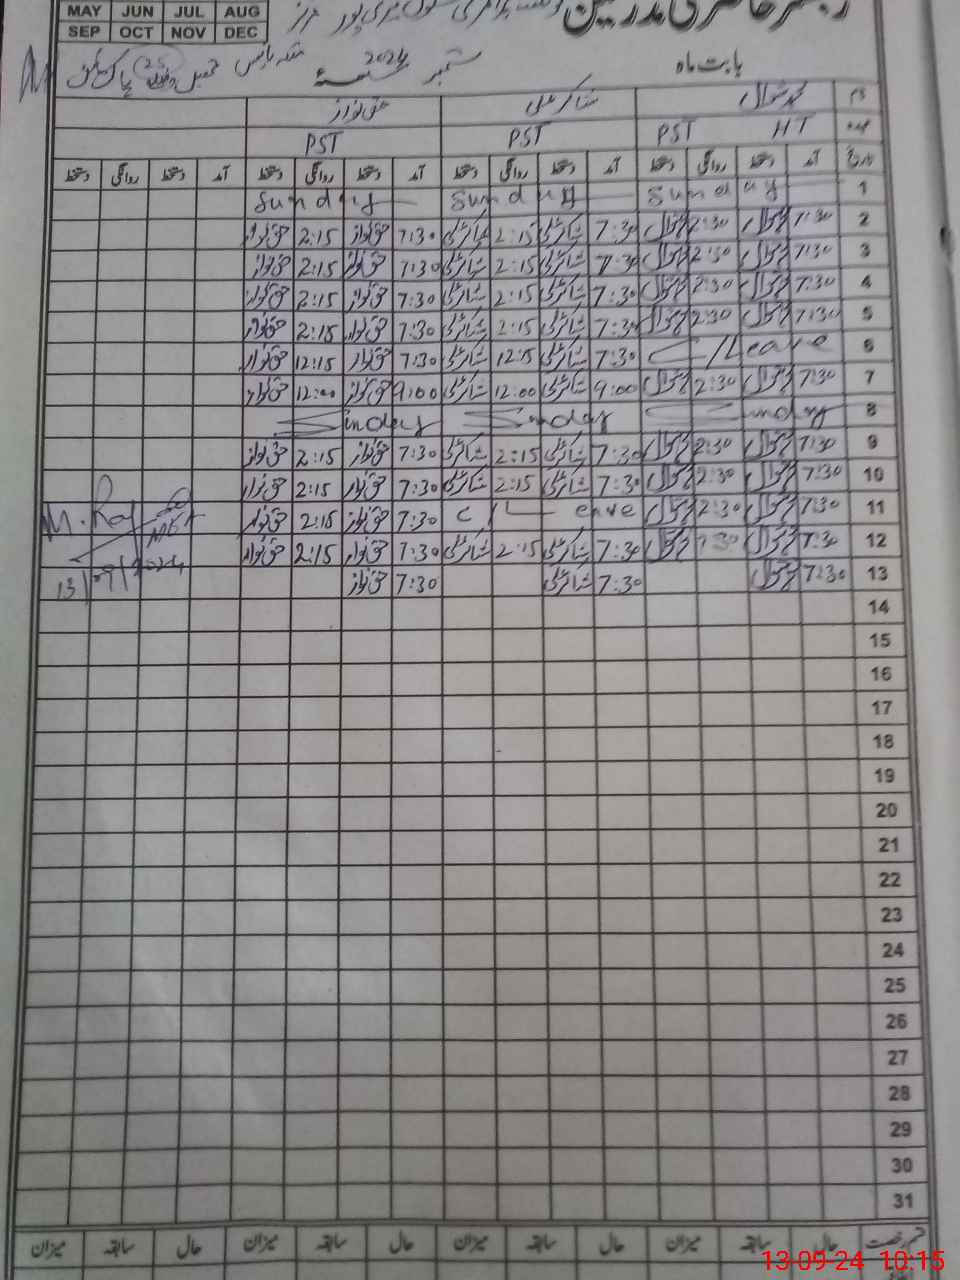 MAY JUN JUL AUG
SEP OCT NOV DEC
رجسٹر حاضری مدرسین
بابت ماہ ستمبر 2024
نام شاکر علی حق نواز
عہدہ HT PST PST PST
تاریخ آمد دستخط روانگی دستخط آمد دستخط روانگی دستخط آمد دستخط روانگی دستخط آمد دستخط روانگی دستخط
1 Sunday Sunday Sunday
2 7:30 2:30 7:30 شاکر علی 2:15 شاکر علی 7:30 حق نواز 2:15 حق نواز
3 7:30 2:30 7:30 شاکر علی 2:15 شاکر علی 7:30 حق نواز 2:15 حق نواز
4 7:30 2:30 7:30 شاکر علی 2:15 شاکر علی 7:30 حق نواز 2:15 حق نواز
5 7:30 2:30 7:30 شاکر علی 2:15 شاکر علی 7:30 حق نواز 2:15 حق نواز
6 C/Leave 7:30 شاکر علی 12:15 شاکر علی 7:30 حق نواز 12:15 حق نواز
7 7:30 2:30 9:00 شاکر علی 12:00 شاکر علی 9:00 حق نواز 12:00 حق نواز
8 Sunday Sunday Sunday
9 7:30 2:30 7:30 شاکر علی 2:15 شاکر علی 7:30 حق نواز 2:15 حق نواز
10 7:30 2:30 7:30 شاکر علی 2:15 شاکر علی 7:30 حق نواز 2:15 حق نواز
11 7:30 2:30 C/Leave 7:30 حق نواز 2:15 حق نواز
12 7:30 7:30 شاکر علی 2:15 شاکر علی 7:30 حق نواز 2:15 حق نواز
13 7:30 7:30 شاکر علی 7:30 حق نواز
13/09/2024
14
15
16
17
18
19
20
21
22
23
24
25
26
27
28
29
30
31
قسم رخصت حال سابقہ میزان حال سابقہ میزان حال سابقہ میزان حال سابقہ میزان
13-09-24 10:15